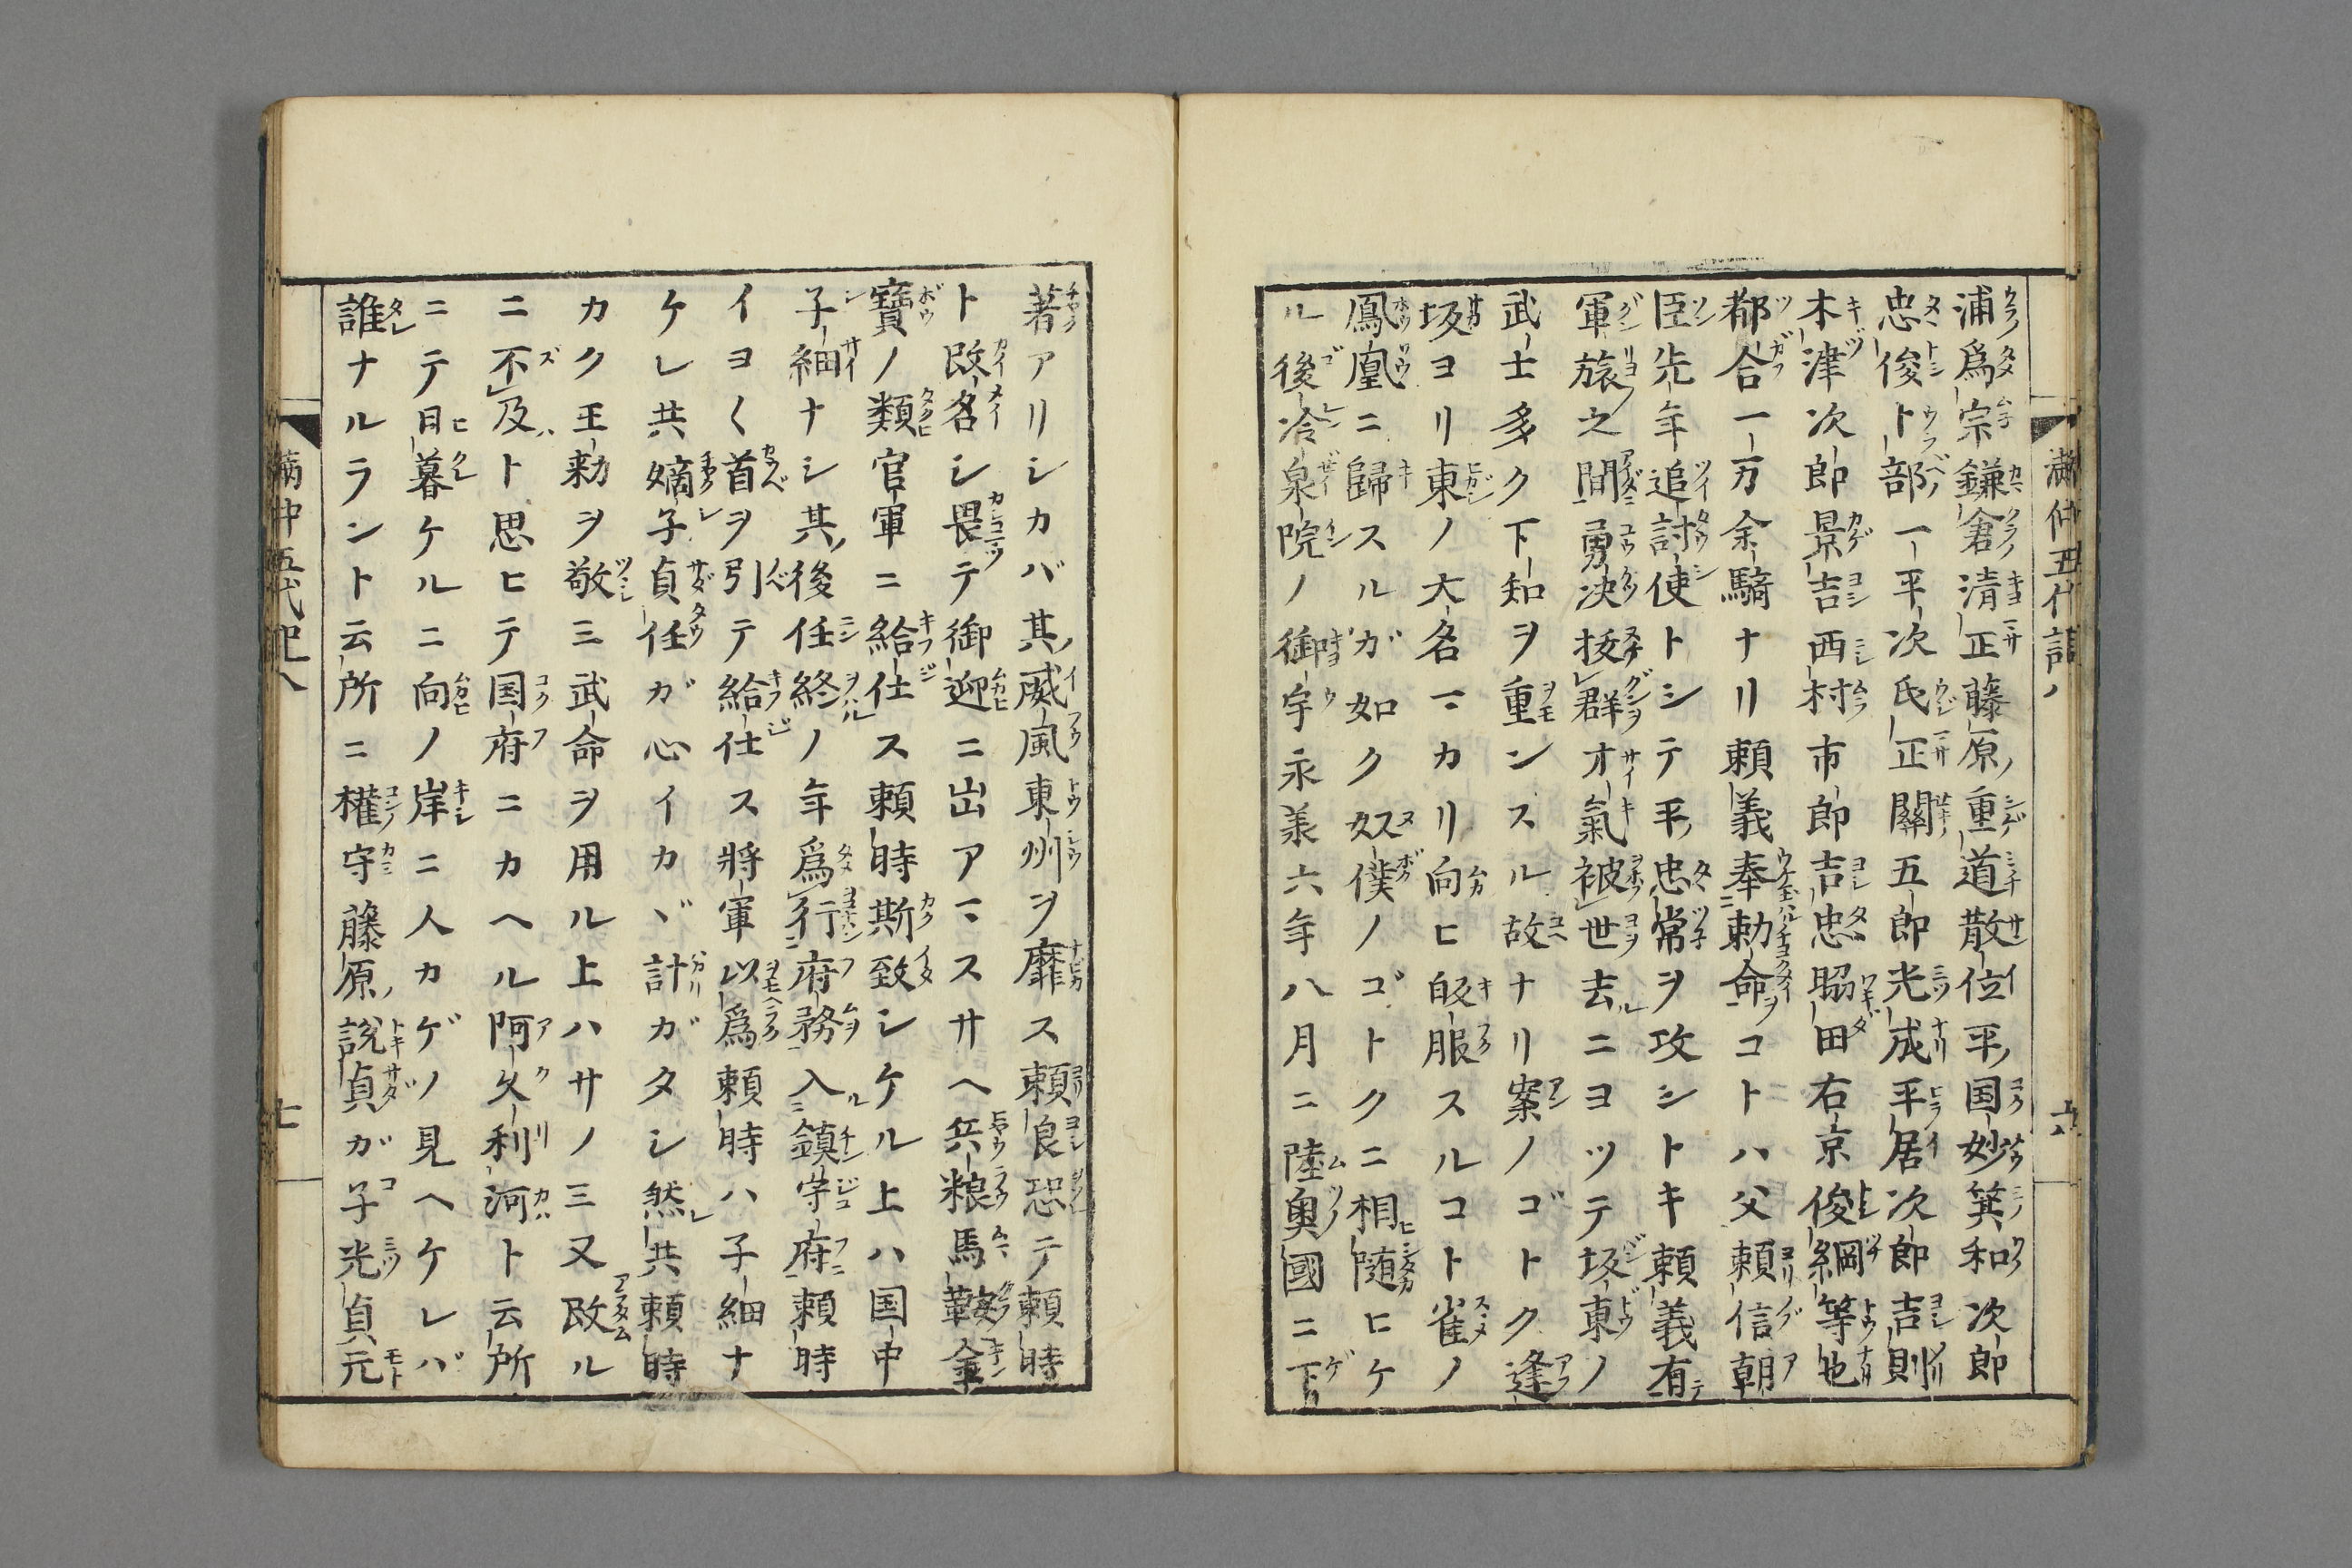 浦為宗鎌倉清正藤原重道散位平国妙箕和次郎
忠俊卜部一平次氏正關五郎光成平居次郎吉則
木津次郎景吉西村市郎吉忠脇田右京俊綱等也
都合一万余騎ナリ頼義奉勅命コトハ父頼信朝
臣先年追討使トシテ平忠常ヲ攻シトキ頼義有
軍旅之間勇决抜群才氣被世去ニヨツテ坂東ノ
武士多ク下知ヲ重ンスル故ナリ案ノゴトク逢
坂ヨリ東ノ大名マカリ向ヒ皈服スルコト雀ノ
鳳凰ニ歸スルガ如ク奴僕ノゴトクニ相随ヒケ
ル後冷泉院ノ御宇永義六年八月ニ陸奥國ニ下
著アリシカバ其威風東州ヲ靡ス頼良恐テ頼時
ト改名シ畏テ御迎ニ出アマスサヘ兵粮馬鞍金
寶ノ類官軍ニ給仕ス頼時斯致シケル上ハ国中
子細ナシ其後任終ノ年為行府務入鎮守府頼時
イヨ〱首ヲ引テ給仕ス将軍以為頼時ハ子細ナ
ケレ共嫡子貞任ガ心イカヾ計ガタシ然共頼時
カク王勅ヲ敬ミ武命ヲ用ル上ハサノミ又改ル
ニ不及ト思ヒテ国府ニカヘル阿久利河ト云所
ニテ日暮ケルニ向ノ岸ニ人カゲノ見ヘケレバ
誰ナルラント云所ニ權守藤原説貞ガ子光貞元